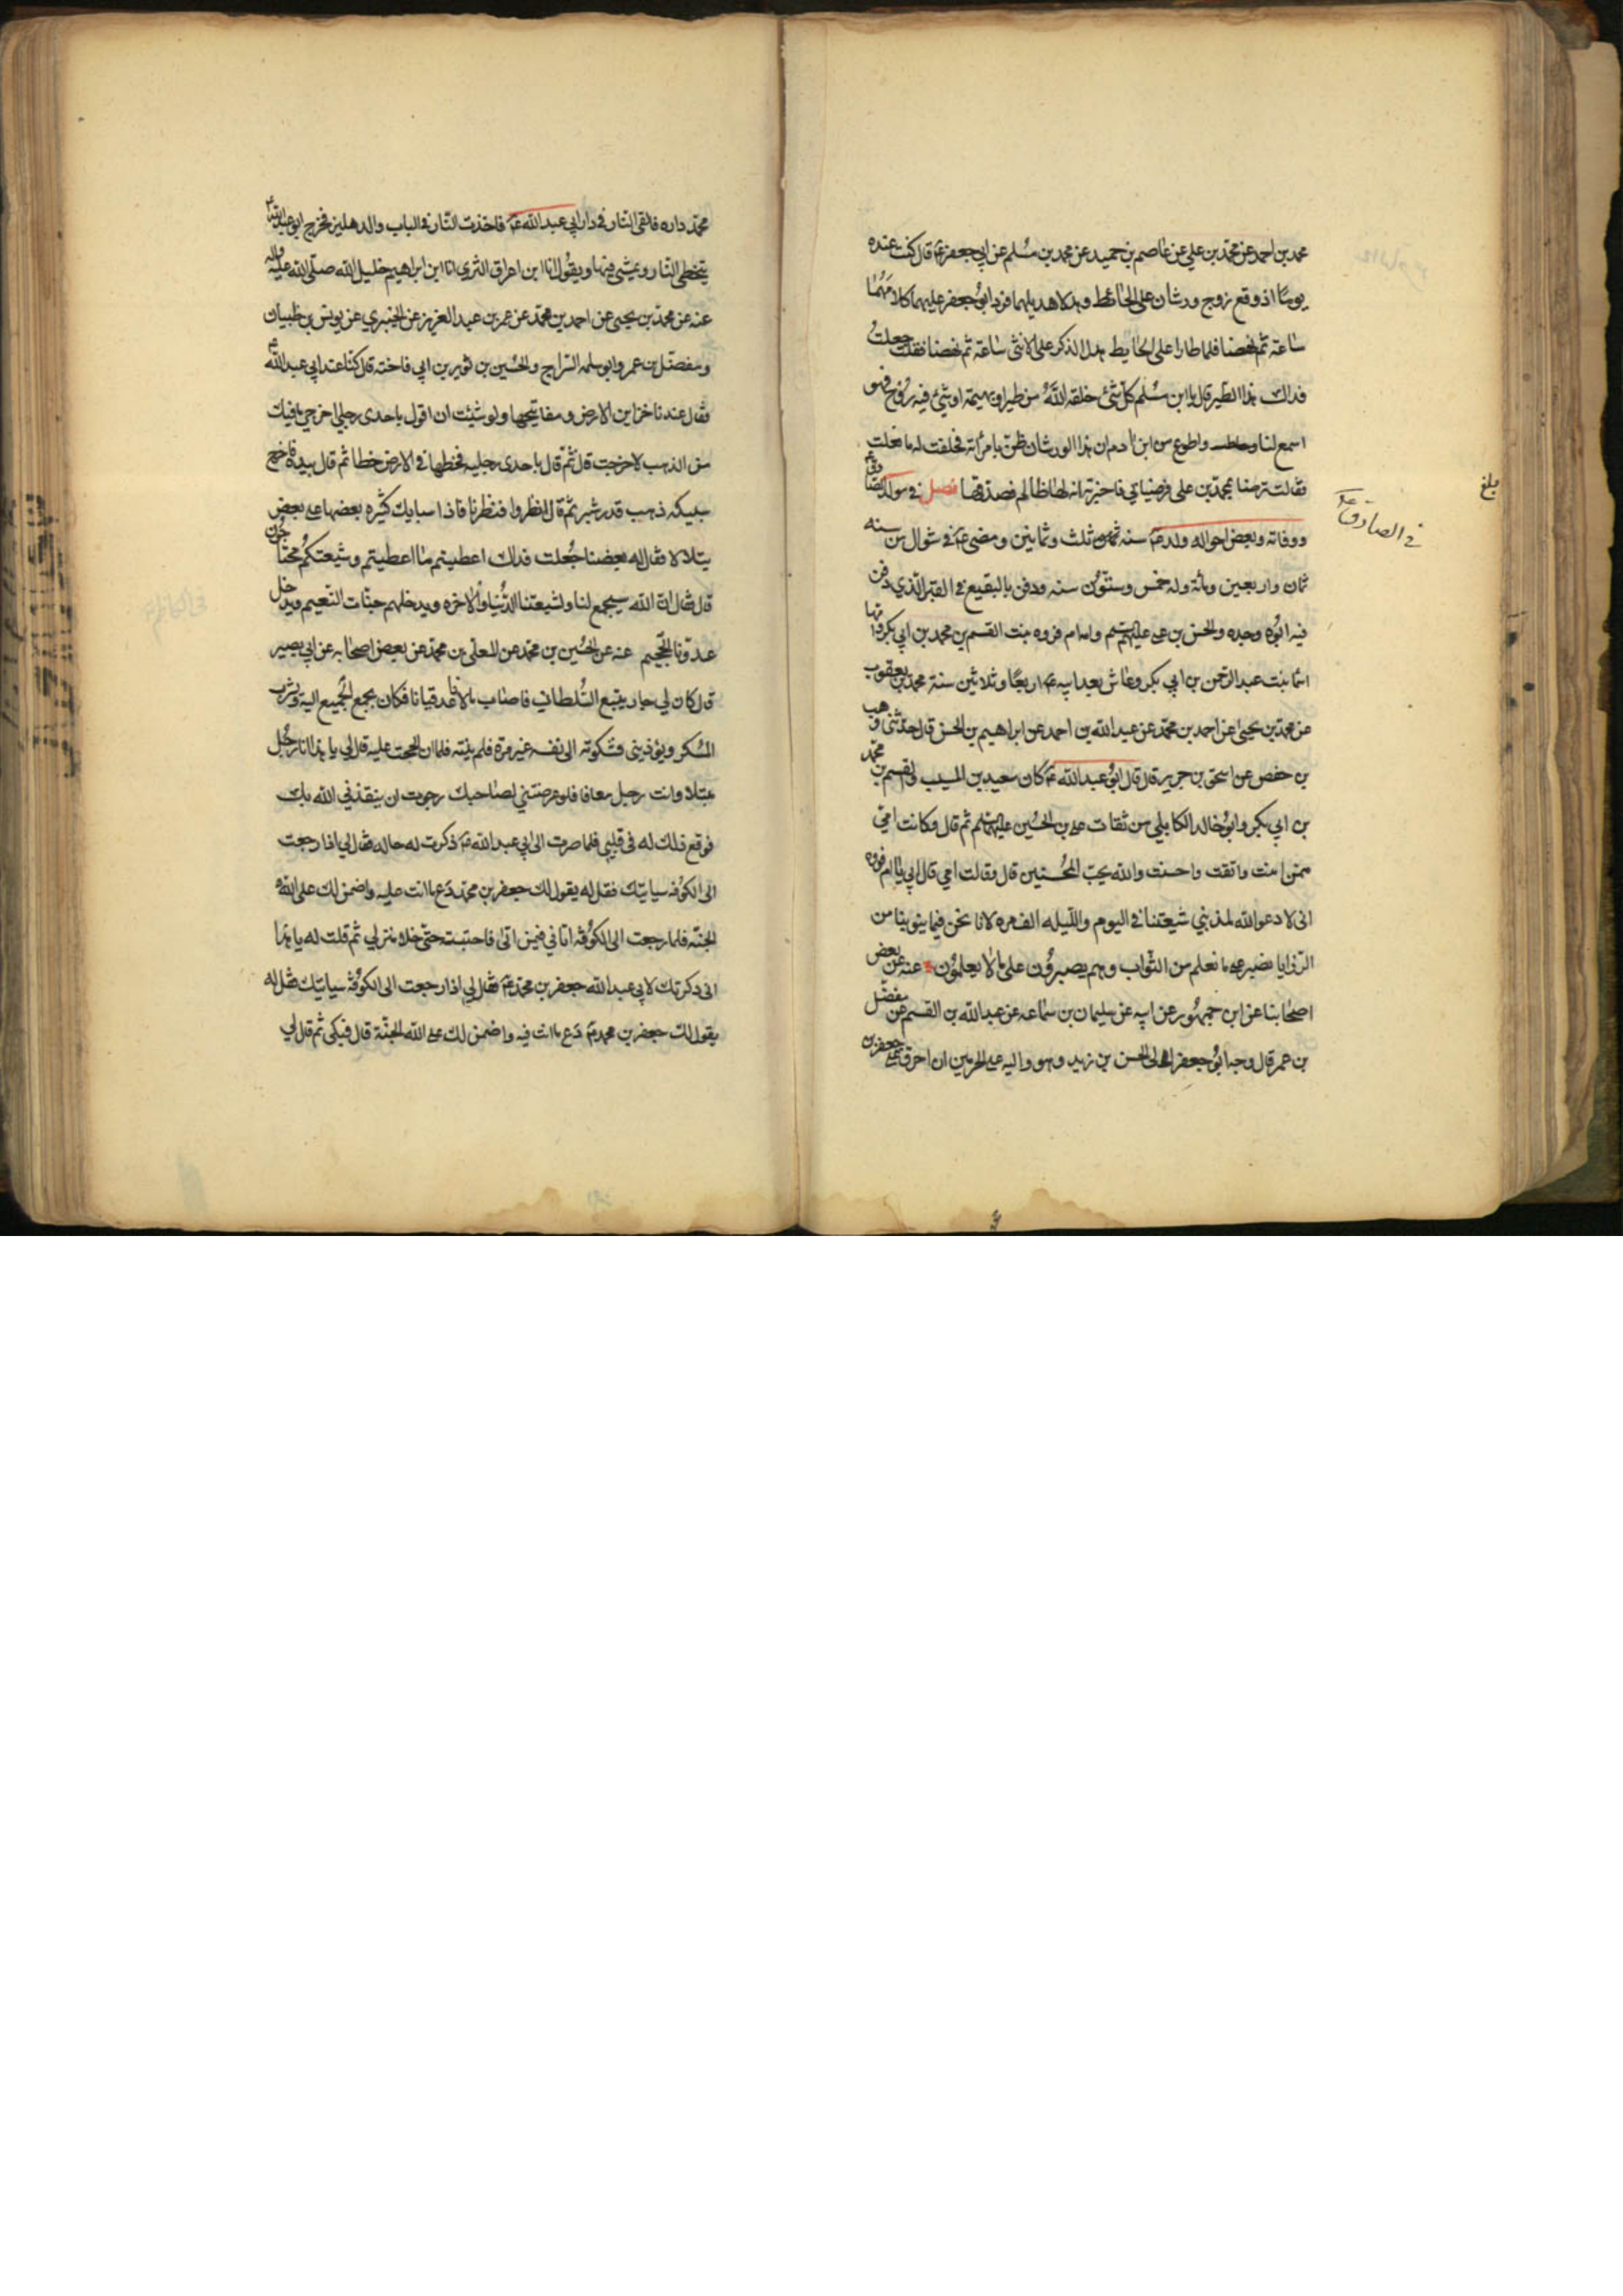 محمد بن احمد عن محمد بن علي عن عاصم بن حميد عن محمد بن مسلم عن ابي جعفر ع قال كنت عنده
يوما اذ وقع زوج ورشان على الحائط وهدلا هديلهما فرد ابو جعفر عليهما كلامهما
ساعة ثم نهضا فلما طارا على الحايط هدل الذكر على الانثى ساعة ثم نهضا فقلت جعلت
فداك ما هذا الطير قال يا ابن مسلم كل شئ خلقه الله من طير او بهيمة او شئ فيه روح فهو
اسمع لنا واطوع من ابن ادم ان هذا الورشان ظن بامرأته فحلفت له ما فعلت
فقالت ترضا بمحمد بن علي فرضيا بي فاخبرته انه لها ظالم فصدقها فصل في مولد الصادق ع
ووفاته وبعض احواله ولد ع سنه ثلث وثمانين ومضى ع في شوال من سنه
ثمان واربعين ومائة وله خمس وستون سنه ودفن بالبقيع في القبر الذي دفن
فيه ابوه وجده والحسن بن علي عليهم السلم وامه ام فروه بنت القسم بن محمد بن ابي بكر وامها
اسما بنت عبد الرحمن بن ابي بكر وعاش بعد ابيه ع اربعا وثلاثين سنة محمد بن يعقوب
عن محمد بن يحيى عن احمد بن محمد عن عبد الله بن احمد عن ابراهيم بن الحسن قال حدثني وهب
بن حفص عن اسحق بن جرير قال قال ابو عبد الله ع كان سعيد بن المسيب والقسم بن محمد
بن ابي بكر وابو خالد الكابلي من ثقات علي بن الحسين عليهم السلم ثم قال وكانت امي
ممن امنت واتقت واحسنت والله يحب المحسنين قال وقالت امي قال ابي يا ام فروه
انى لادعو الله لمذنبي شيعتنا في اليوم والليله الف مره لانا نحن فيما ينوبنا من
الرزايا نصبر على ما نعلم من الثواب وهم يصبرون على ما لا يعلمون عنه عن بعض
اصحابنا عن ابن جمهور عن ابيه عن سليمان بن سماعه عن عبد الله بن القسم عن مفضل
بن عمر قال وجه ابو جعفر الى الحسن بن زيد وهو واليه على الحرمين ان احرق على جعفر بن
في الصادق ع
بلغ
محمد داره فالقى النار في دار ابي عبد الله ع فاخذت النار في الباب والدهليز فخرج ابو عبد الله ع
يتخطى النار ويمشى فيها ويقول انا ابن اعراق الثرى انا ابن ابراهيم خليل الله صلى الله عليه واله
عنه عن محمد بن يحيى عن احمد بن محمد عن عمر بن عبد العزيز عن الخيبري عن يونس بن ظبيان
ومفضل بن عمر وابو سلمه السراج والحسين بن ثوير بن ابي فاخته قال كنا عند ابي عبد الله ع
فقال عندنا خزاين الارض ومفاتيحها ولو شئت ان اقول باحدى رجلي اخرجي ما فيك
من الذهب لاخرجت قال ثم قال باحدى رجليه فخطها في الارض خطا ثم قال بيده فاخرج
سبيكه ذهب قدر شبر ثم قال انظروا فنظرنا فاذا سبايك كثيره بعضها على بعض
يتلالا فقال له بعضنا جعلت فداك اعطيتم ما اعطيتم وشيعتكم محتاجون
قال فقال ان الله سيجمع لنا ولشيعتنا الدنيا والاخره ويدخلهم جنات النعيم ويدخل
عدونا الجحيم عنه عن الحسين بن محمد عن المعلى بن محمد عن بعض اصحابه عن ابي بصير
قال كان لي جار يتبع السلطان فاصاب مالا فاعد قيانا فكان يجمع الجميع اليه ويشرب
المسكر ويؤذيني فشكوته الى نفسه غير مرة فلم ينته فلما ان الححت عليه قال لي يا هذا انا رجل
مبتلا وانت رجل معافا فلو عرضتني لصاحبك رجوت ان ينقذني الله بك
فوقع ذلك له في قلبي فلما صرت الى ابي عبد الله ع ذكرت له حاله فقال لي اذا رجعت
الى الكوفه سياتيك فقل له يقول لك جعفر بن محمد دع ما انت عليه واضمن لك على الله
الجنه فلما رجعت الى الكوفه اتاني فيمن اتى فاحتبسته حتى خلا منزلي ثم قلت له يا هذا
انى ذكرتك لابي عبد الله جعفر بن محمد ع فقال لي اذا رجعت الى الكوفه سياتيك فقل له
يقول لك جعفر بن محمد ع دع ما انت فيه واضمن لك على الله الجنة قال فبكى ثم قال لي